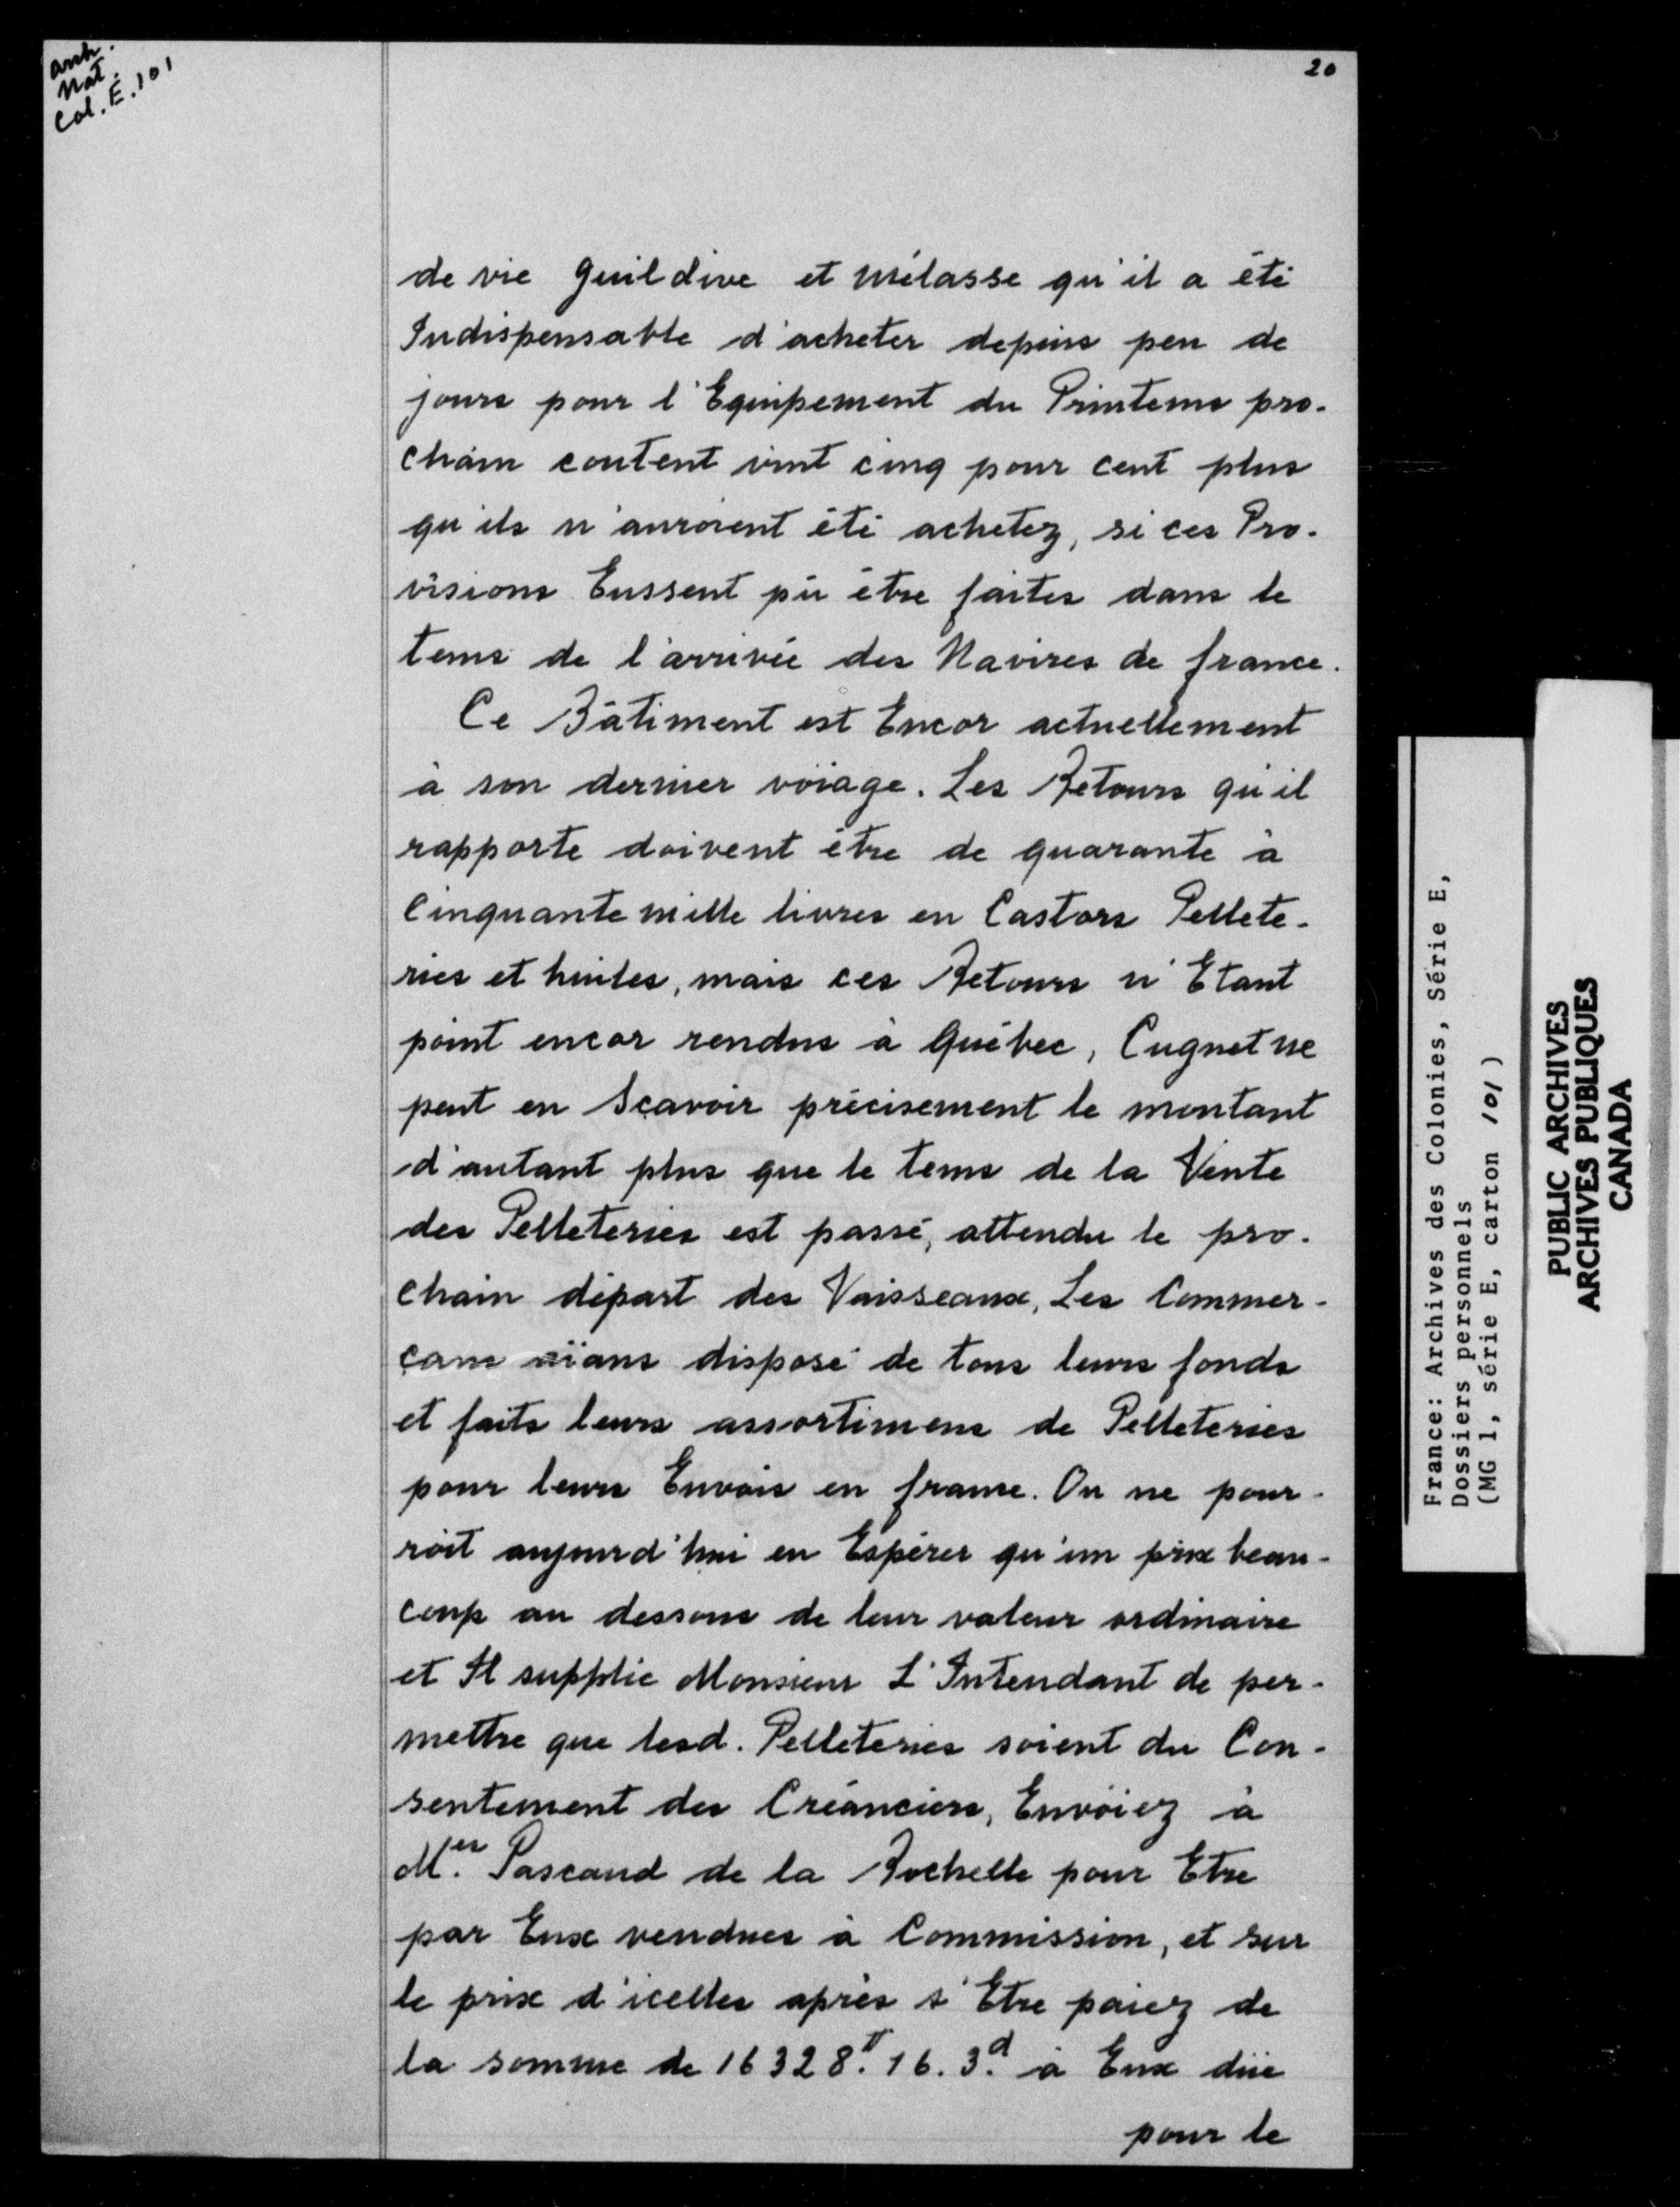 arch.
Nat.
Col. E. 101
20
de vie guildive et mélasse qu'il a été
Indispensable d'acheter depuis peu de
jours pour l'Equipement du Printems pro-
chain coutent vint cinq pour cent plus
qu'ils n'auroient été achetez, si ces Pro-
visions Eussent pû être faites dans le
tems de l'arrivée des Navires de france.
Ce Bâtiment est Encor actuellement
à son dernier voïage. Les Retours qu'il
rapporte doivent être de quarante à
Cinquante mille livres en Castors Pellete-
ries et huiles, mais ces Retours n'Etant
point encor rendus à Québec, Cugnet ne
peut en Sçavoir précisement le montant
d'autant plus que le tems de la Vente
des Pelleteries est passé, attendu le pro-
chain départ des Vaisseaux, Les Commer-
çans aïans disposé de tous leurs fonds
et faits leurs assortimens de Pelleteries
pour leurs Envois en france. On ne pour-
roit aujourd'hui en Espérer qu'un prix beau-
coup au dessous de leur valeur ordinaire
et Il supplie Monsieur L'Intendant de per-
mettre que lesd. Pelleteries soient du Con-
sentement des Créanciers, Envoïez à
M.rs Pascaud de la Rochelle pour Etre
par Eux vendues à Commission, et sur
le prix d'icelles après s'Etre païez de
la somme de 16328.tt 16. 3.d à Eux düe
pour le
France: Archives des Colonies, Série E,
Dossiers personnels
(MG 1, série E, carton 101)
PUBLIC ARCHIVES
ARCHIVES PUBLIQUES
CANADA